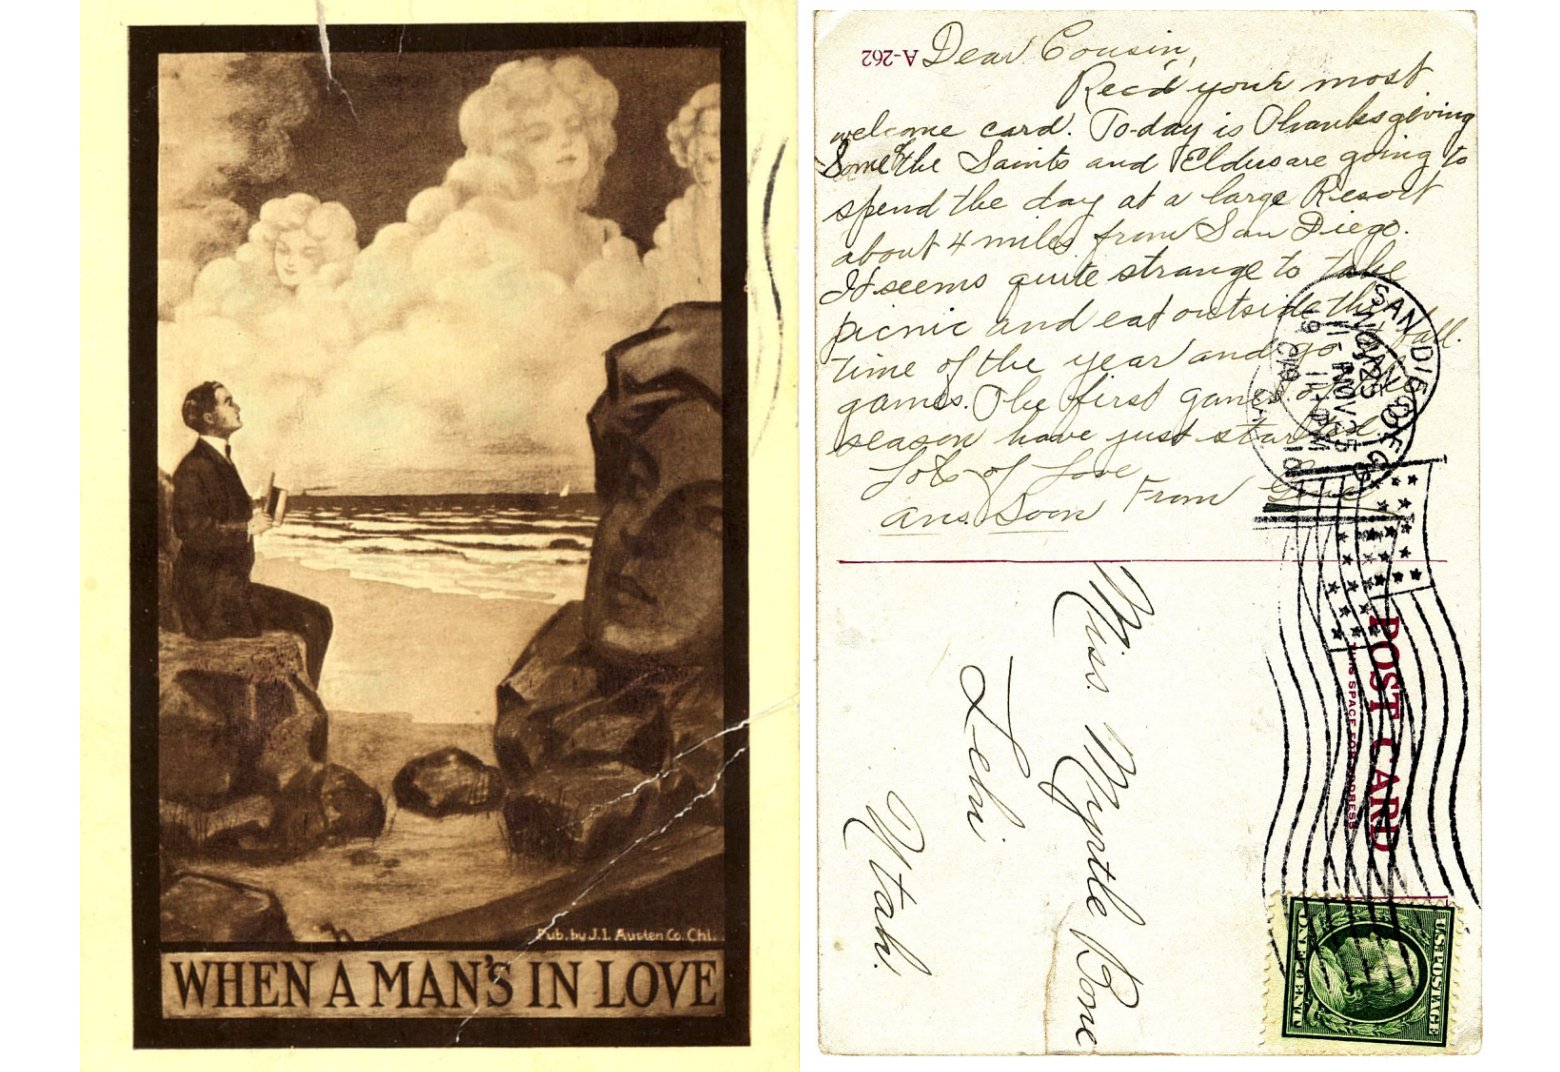 Pub. by J.I. Austen Co. Chi.
WHEN A MAN'S IN LOVE
A-262
Dear Cousin,
Rec'd your most
welcome card. To-day is Thanksgiving
Some of the Saints and Elders are going to
spend the day at a large Resort
about 4 miles from San Diego.
It seems quite strange to take
picnic and eat outside this
time of the year and go
games. The first games of
season have just started
Lots of Love
Ans. Soon From
SAN DIEGO
NOV 25
POST CARD
THIS SPACE FOR ADDRESS
Miss. Myrtle Bone
Lehi
Utah.
U.S. POSTAGE